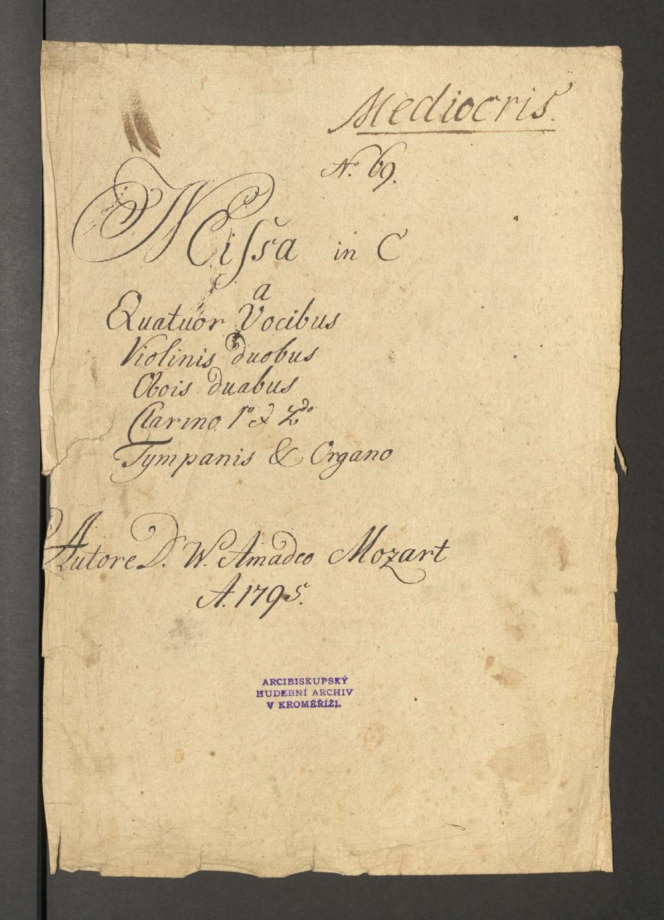 Mediocris.
No 69.
Missa in C
a
Quatuor Vocibus
Violinis duobus
Obois duabus
Clarino 1o & 2do
Tympanis & Organo
Autore D. W. Amadeo Mozart
A. 1795.
ARCIBISKUPSKÝ
HUDEBNÍ ARCHIV
V KROMĚŘÍŽI.